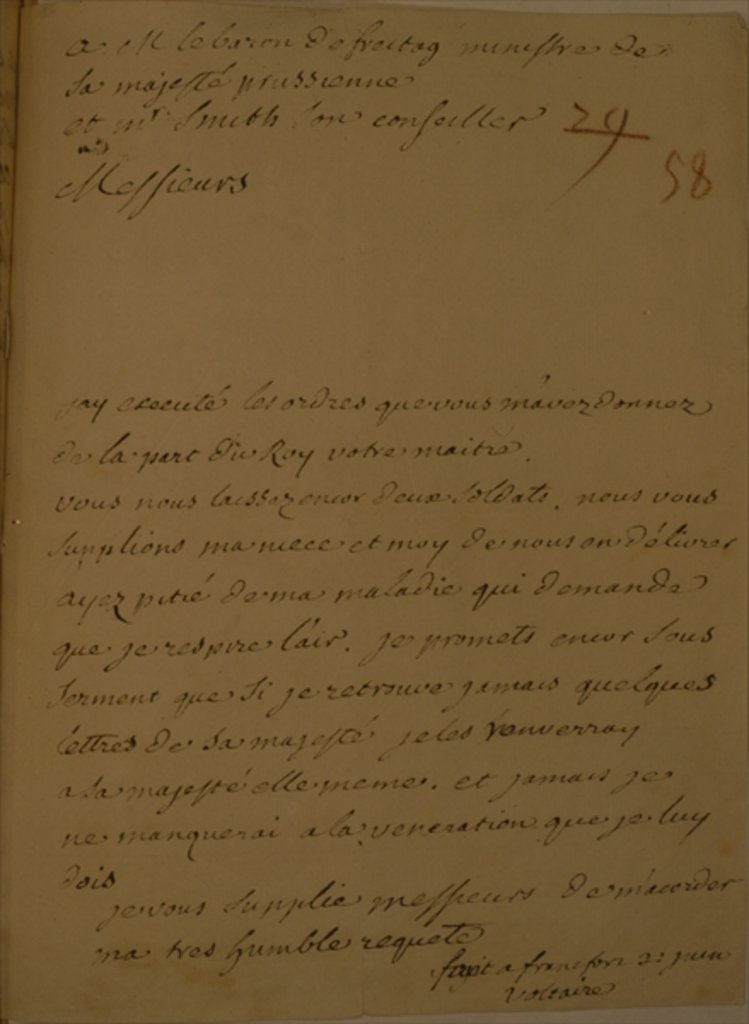 a M le baron de freitag ministre de
sa majesté prussienne
et mr Smith son conseiller
29
58
Messieurs
jay executé les ordres que vous m'avez donnez
de la part du Roy votre maitre.
vous nous laissez encor deux soldats. nous vous
supplions ma niece et moy de nous en délivrer
ayez pitié de ma maladie qui demande
que je respire l'air. je promets encor sous
serment que si je retrouve jamais quelques
lettres de sa majesté je les renverray
a sa majesté elle meme. et jamais je
ne manquerai a la veneration que je luy
dois
je vous supplie messieurs de m'acorder
ma tres humble requete
fait a francfort juin
Voltaire